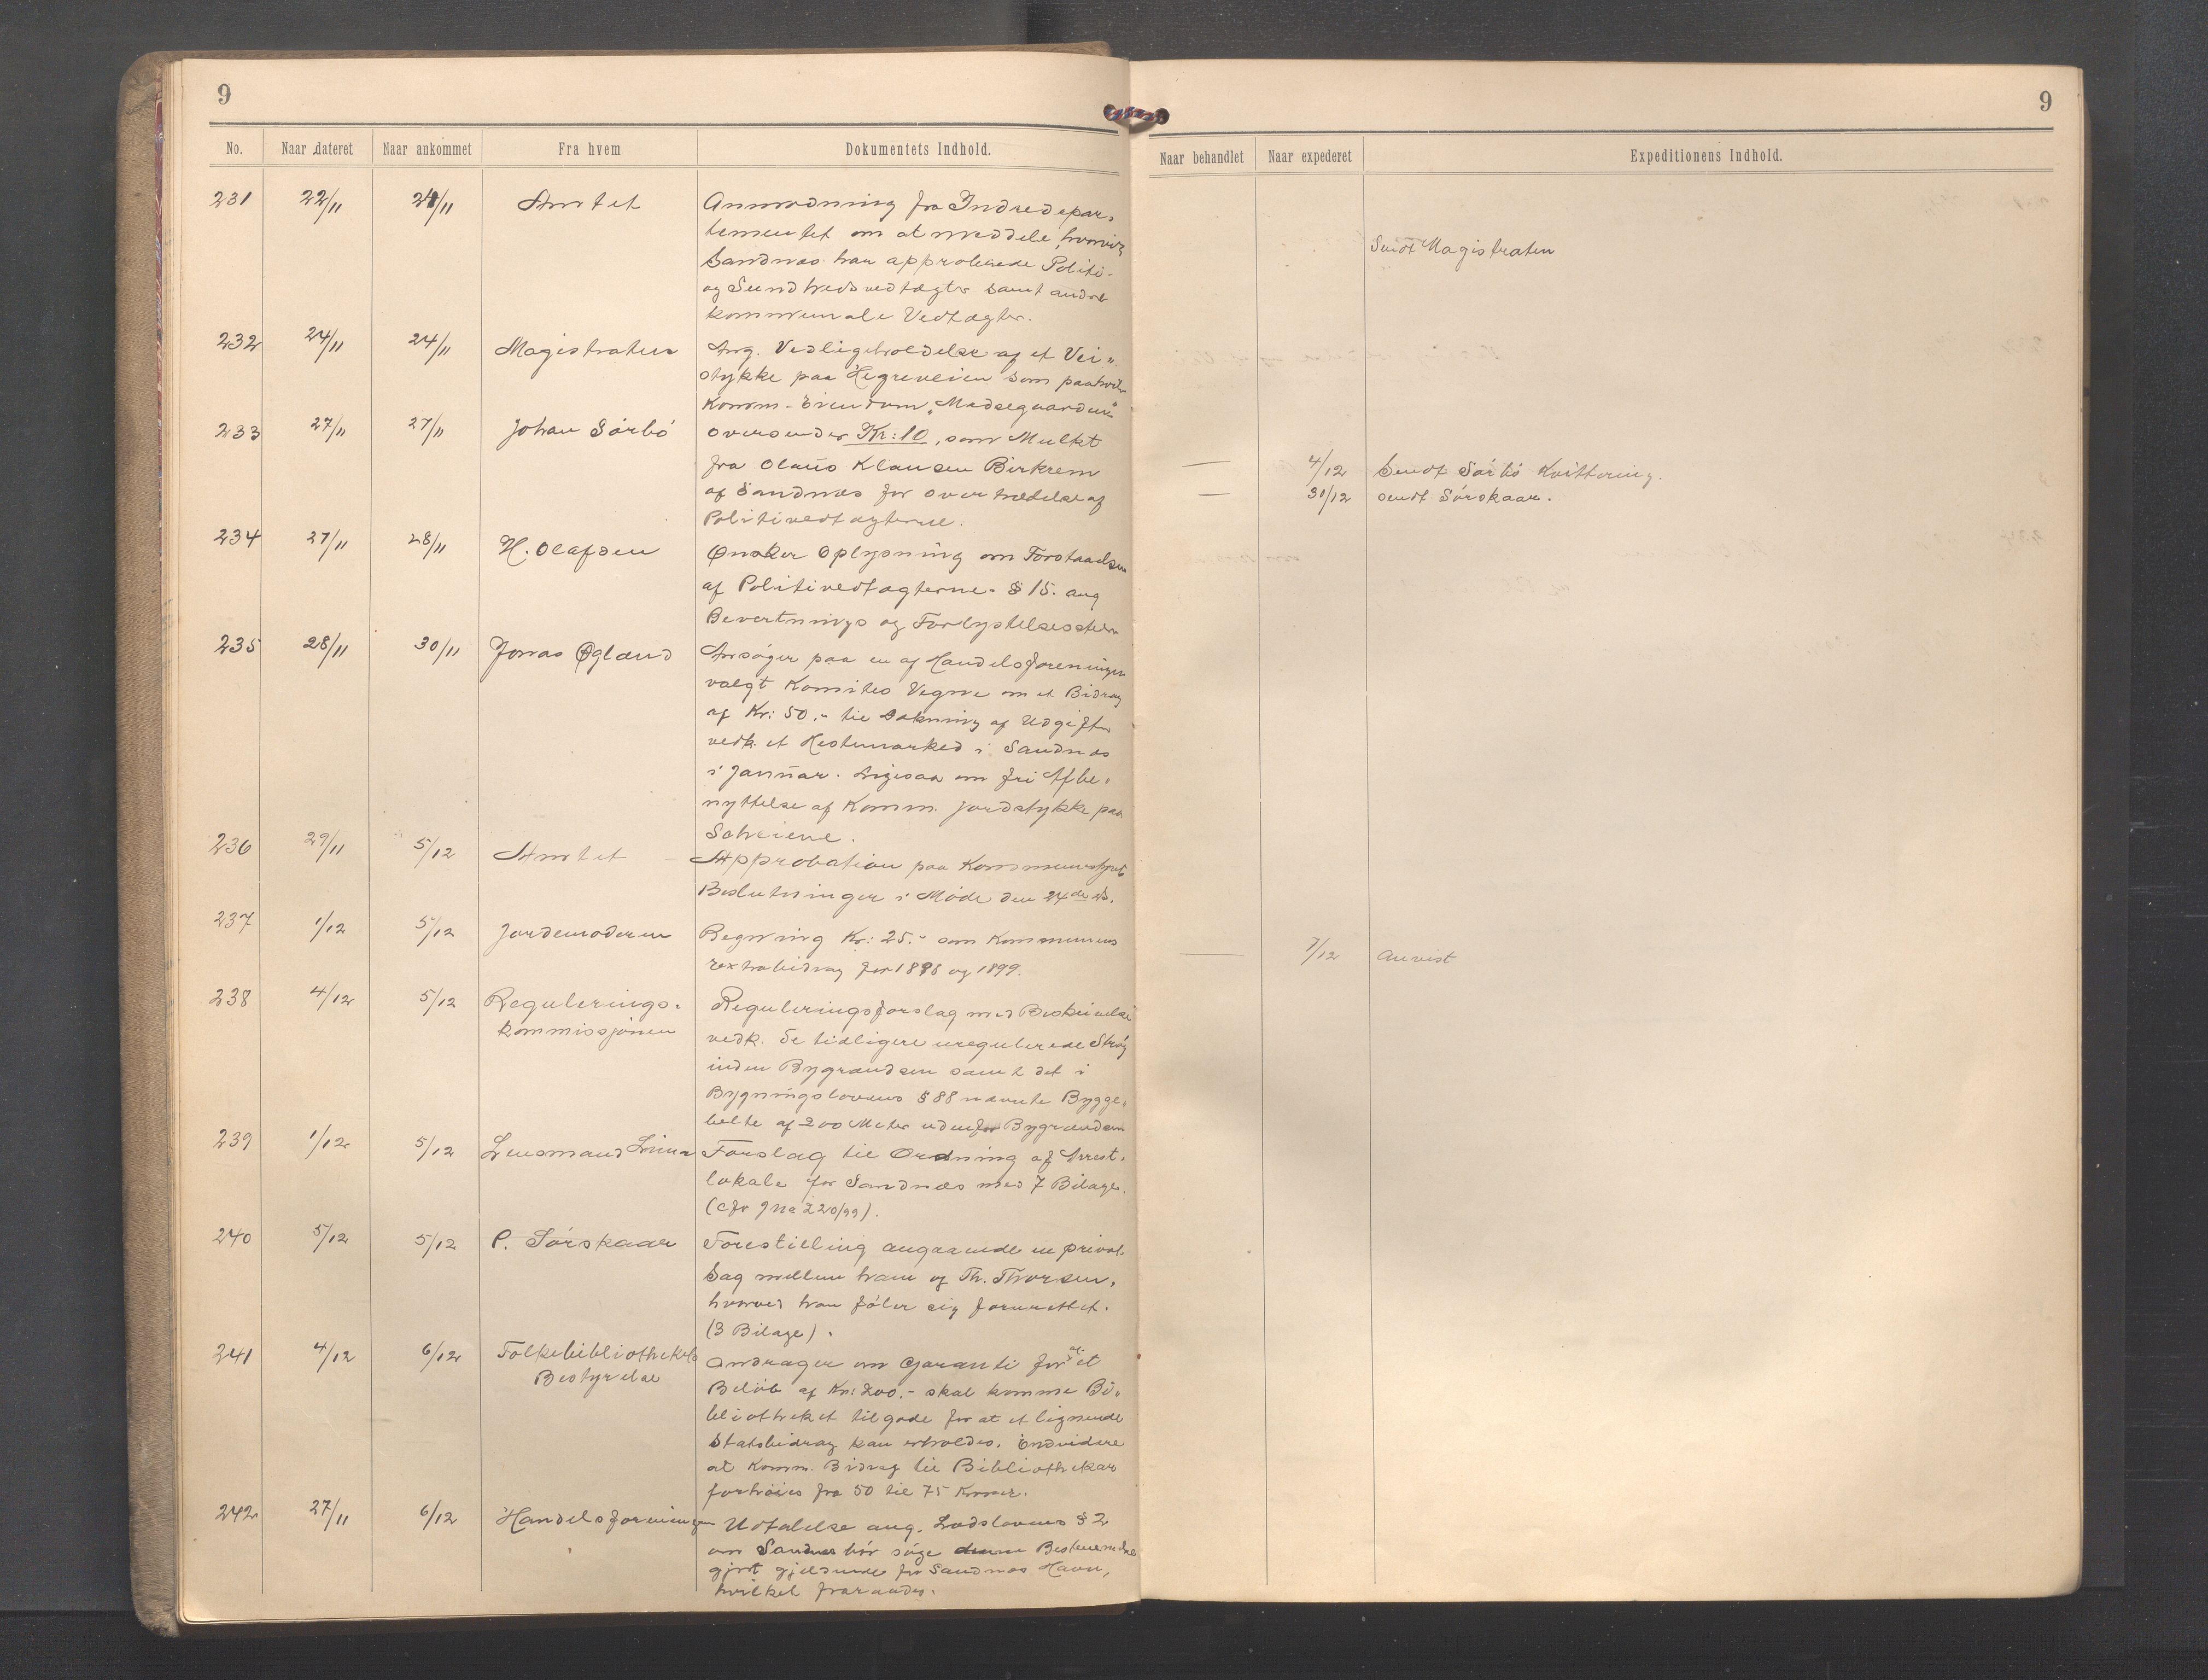 9
No. Naar dateret Naar ankommet Fra hvem Dokumentets Indhold.
231 22/11 24/11 Amtet Anmodning fra Indredepar-
tementet om at meddele, hvorvidt
Sandnæs har approberede Politi-
og Sundhedsvedtægter samt andre
kommunale Vedtægter.
232 24/11 24/11 Magistraten Ang. Vedligeholdelse af et Vei-
stykke paa Hegreveien som paahviler
Komm-Eiendom "Madsegaarden"
233 27/11 27/11 Johan Sørbö oversender Kr: 10, som Mulkt
fra Olaus Klausen Birkrem
af Sandnæs for overtrædelse af
Politivedtægterne.
234 27/11 28/11 H. Olafsen Ønsker Oplysning om Forstaaelsen
af Politivedtægterne § 15. ang
Bevertnings og Forlystelsessteder
235 28/11 30/11 Jonas Øgland Ansöger paa en af Handelsforeningen
valgt Komites Vegne om et Bidrag
af Kr: 50.- til Dækning af Udgifter
vedk. et Hestemarked i Sandnæs
i Januar. Ligesaa om fri Afbe-
nyttelse af Komm. Jordstykke paa
236 29/11 5/12 Amtet Approbation paa Kommunestyrets
Beslutninger i Möde den 24de ds.
237 1/12 5/12 Jordemoderen Regning Kr: 25.- som Kommunens
extrabidrag for 1898 og 1899.
238 4/12 5/12 Regulerings- Reguleringsforslag med Beskrivelse
kommissjonen vedk. de tidligere uregulerede Strög
inden Bygrændsen samt det i
Bygningslovens § 88 nævnte Bygge-
belte af 200 Meter udenfor Bygrændsen
239 1/12 5/12 Lensmand Lima Forslag til Ordning af Arrest-
lokale for Sandnæs med 7 Bilage.
(cfr 220/99).
240 5/12 5/12 P. Sörskaar Forestilling angaaende en privat
Sag mellem ham og Th. Thorsen,
hvorved han föler sig forurettet.
(3 Bilage).
241 4/12 6/12 Folkebibliothekets Andrager om Garanti for at et
Bestyrelse Belöb af Kr: 200.- skal komme Bi-
bliotheket tilgode for at et lignende
Statsbidrag kan erholdes. Endvidere
at Komm. Bidrag til Bibliothekar
forhöies fra 50 til 75 Kroner.
242 27/11 6/12 Handelsforeningen Udtalelse ang. Lodslovens § 2
om Sandnæs bör söge denne Bestemmelse
gjort gjeldende for Sandnæs Havn,
hvilket fraraades.
9
Naar behandlet Naar expederet Expeditionens Indhold.
Sendt Magistraten
— 4/12 Sendt Sörbö Kvittering.
— 30/12 sendt Sörskaar.
— 7/12 anvist